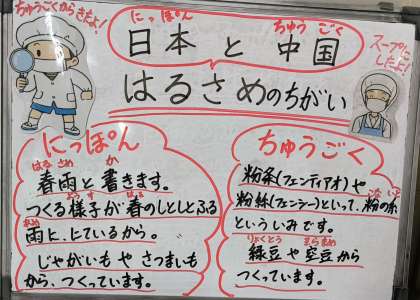 ちゅうごくからきたよ!
にっぽん ちゅうごく
日本と中国
はるさめのちがい
スープに
したよ!
にっぽん
はるさめ か
春雨と書きます。
ようす はる
つくる様子が春のしとしとふる
あめ
雨に、にているから。
じゃがいもやさつまいも
から、つくっています。
ちゅうごく
粉条(フェンティアオ)や
粉絲(フェンシー)といって、粉の糸
といういみです。
りょくとう そらまめ
緑豆や空豆から
つくっています。